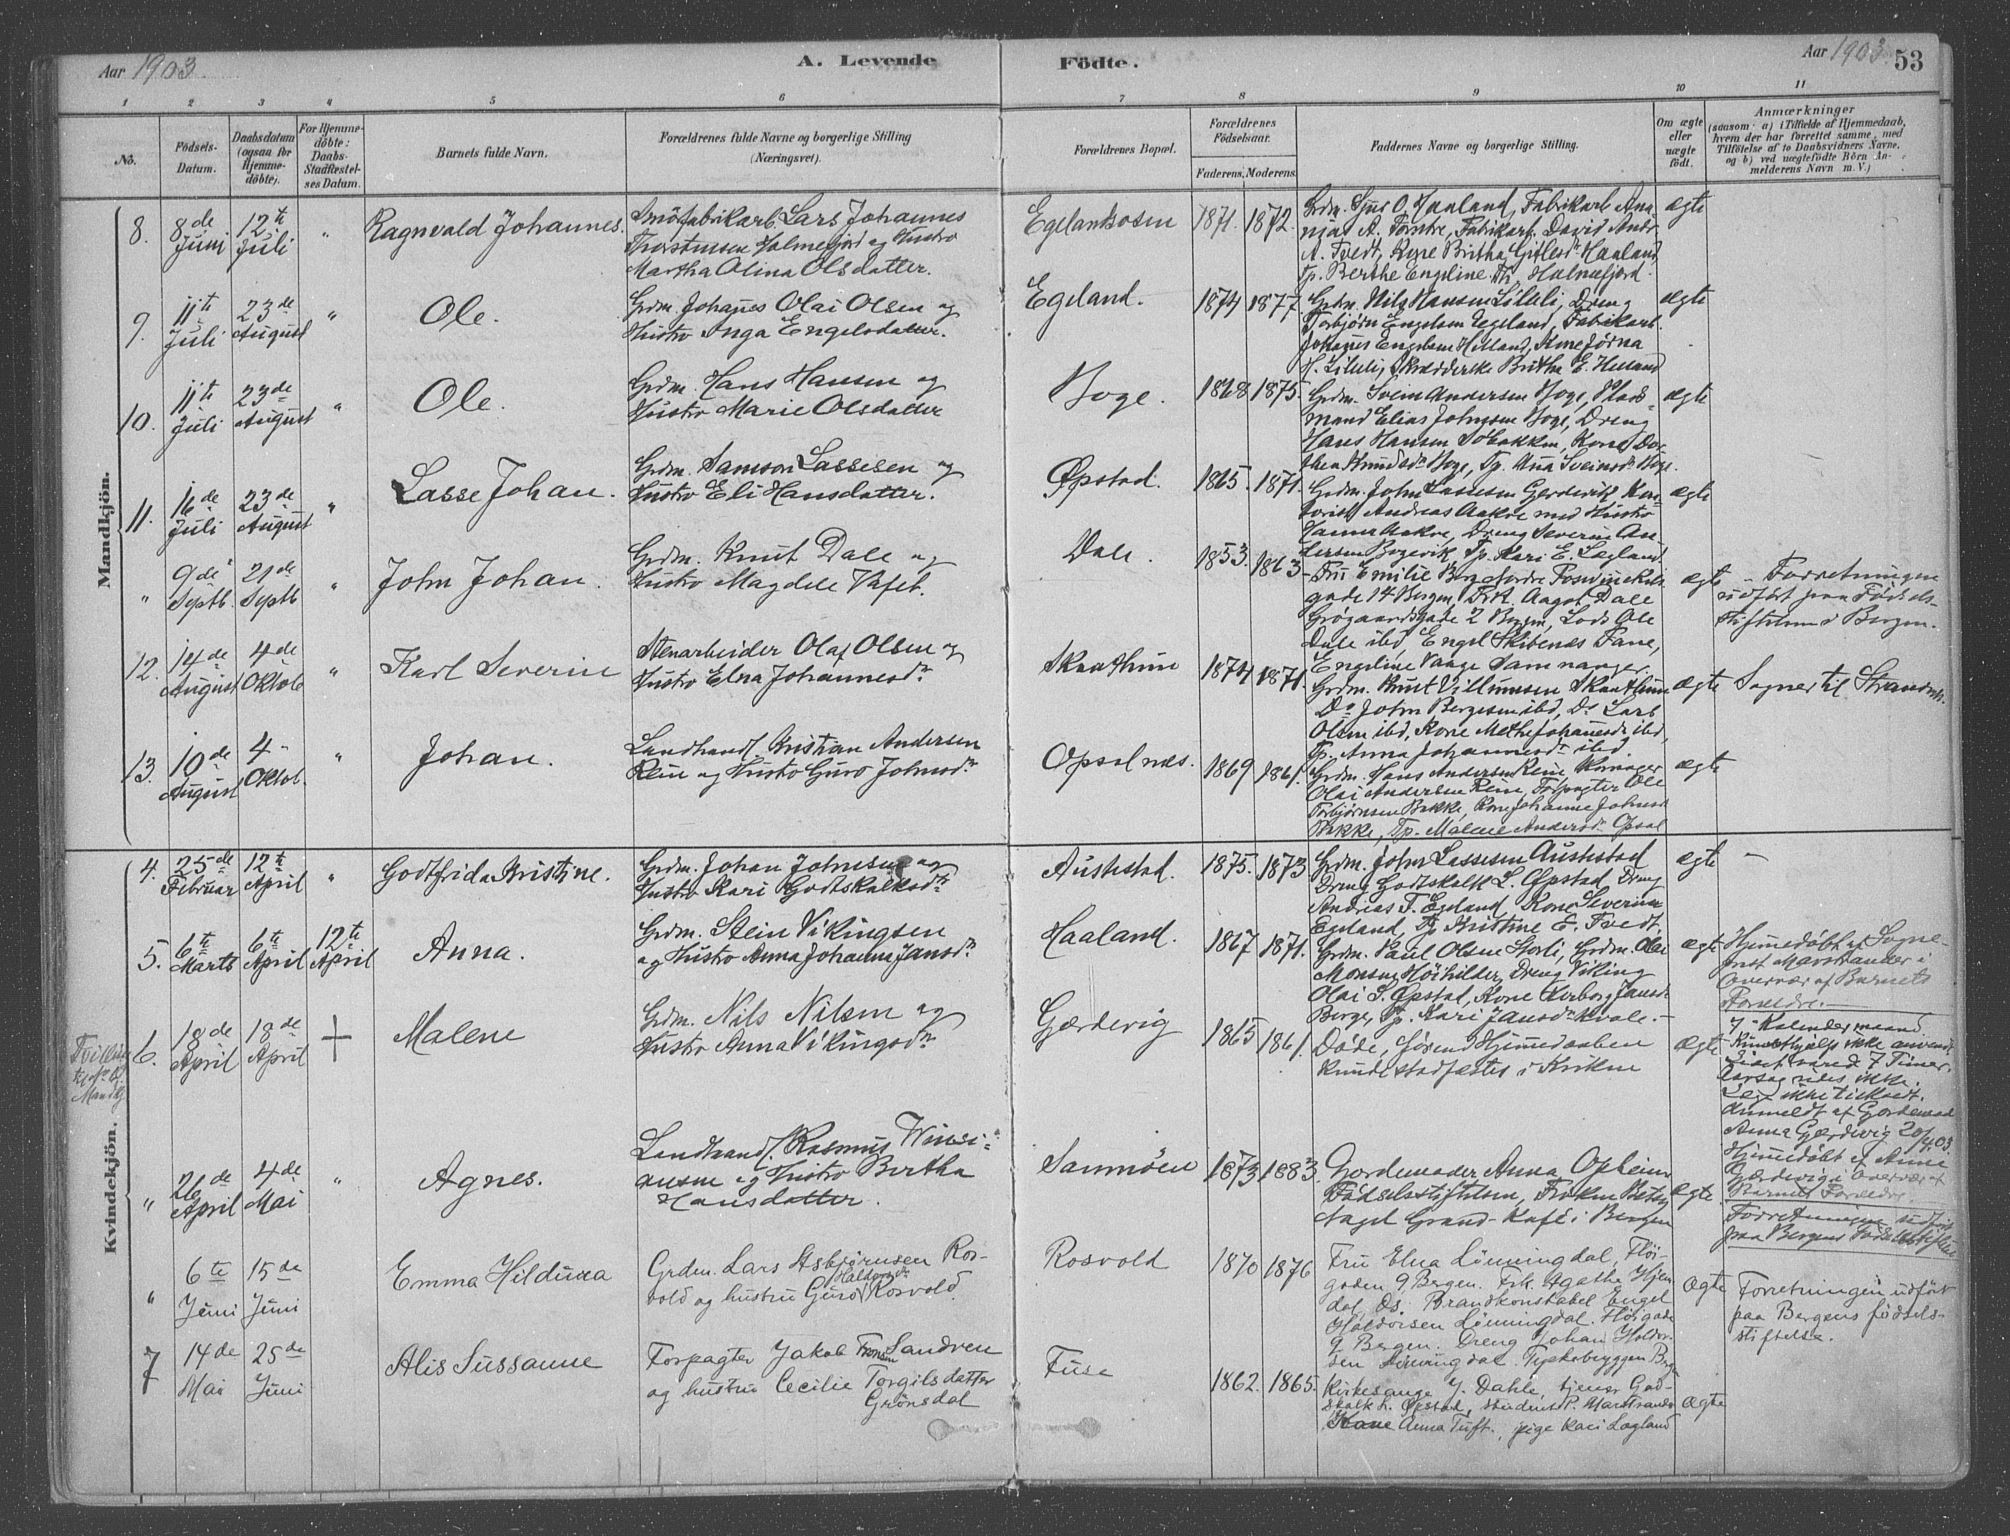 Aar 1903.
A. Levende
Födte.
Aar 1903.
53
1 2 3 4 5 6 7 8 9 10 11
No.
Födsels-
Datum.
Daabsdatum
(ogsaa for
Hjemme-
döbte).
For Hjemme-
döbte:
Daabs-
Stadfæstel-
ses Datum.
Barnets fulde Navn.
Forældrenes fulde Navne og borgerlige Stilling
(Næringsvei).
Forældrenes Bopæl.
Forældrenes
Födselsaar.
Faderens. Moderens.
Faddernes Navne og borgerlige Stilling.
Om ægte
eller
uægte
födt.
Anmærkninger
(saasom: a) i Tilfælde af Hjemmedaab,
hvem der har forrettet samme, med
Tilföielse af to Daabsvidners Navne,
og b) ved uægtefödte Börn An-
melderens Navn m. V.)
Mandkjön.
8. 8de Juni 12te Juli " Ragnvald Johannes.
Smöfabrikarb. Lars Johannes
Thorstensen Holmefjord og Hustro
Martha Olina Olsdatter.
Egelandsosen 1871. 1872.
Grdm. Sjur O. Haaland, Fabrikarb. Ana-
nias A. Fabrikarb. David Andr.
A. Tvedt, Kone Britha Haaland
Tp. Berthe Engeline Th. Holmefjord.
ægte
9. 11te Juli 23de August " Ole.
Grdm. Johannes Olai Olsen og
Hustro Inga Engelsdatter.
Egeland. 1874 1877.
Grdm. Nils Hansen Lileli, Dreng
Torbjörn Engelsen Egeland, Fabrikarb.
Johannes Engelsen Helland, Kone Jörna
H. Lileli, Skrædderske Britha E. Helland
ægte
10. 11te Juli 23de August " Ole.
Grdm. Hans Hansen og
Hustro Marie Olsdatter
Boge. 1868 1875.
Grdm. Svein Andersen Boge, Plads-
mand Elias Johnsen Boge, Dreng
Hans Hansen Söbakken, Kone Dor-
thea Knudsdr. Boge, Tp. Ana Sveinsdr. Boge.
ægte
11. 16de Juli 23de August " Lasse Johan.
Grdm. Samson Lassesen og
Hustro Eli Hansdatter.
Øpstad. 1865. 1871.
Grdm. John Lassesen Gjerdevik
Andreas Aakre med Hustro
Hanna Aakre, Dreng Severin An-
dersen Bogevik, Tp. Kari E. Lægland.
ægte
" 9de Septb. 21de Septb " John Johan.
Grdm. Knut Dale og
Hustro Magdele
Dale. 1853. 1863
Fru Emilie Berg
gade 14 Bergen, Frk. Aagot Dale
gade 2 Bergen, Lods Ole
Dale ibd, Engel Fane,
Engeline Vaage Samnanger.
ægte " Forretningen
udfört paa Födsels-
stiftelsen i Bergen.
12. 14de August 4de Oktob. " Karl Severin
Stenarbeider Olaf Olsen og
Hustro Elna Johannesdr.
Skaathun 1874 1871.
Grdm. Knut Villumsen Skaathun
Do John Bergesen ibd, Do Lars
Olsen ibd, Kone Methe Johannesdr. ibd,
Tp. Anna Johannesdr. ibd.
ægte Sogner til Strandvik.
13. 10de August 4 Oktob. " Johan.
Landhand. Kristian Andersen
Rein og Hustro Guro Johnsdr.
Opsalnes. 1869 1861.
Grdm. Hans Andersen Rein,
Olai Andersen Rein, Forpagter Ole
Torbjörnsen Bække, Kone Johanne Johnsdr.
Bække, Tp. Malene Andersdr. Opsal
ægte
Kvindekjön.
4. 25de Februar 12te April " Godtfrida Kristine.
Grdm. Johan Johnsen og
Hustro Kari Godtskalksdr.
Austestad. 1875. 1873
Grdm. John Lassesen Austestad
Dreng Godtskalk L. Øpstad, Dreng
Andreas T. Egeland, Kone Severine
Egeland, Tp. Kristine E. Tvedt.
ægte –
5. 6te Marts 6te April 12te April Anna.
Grdm. Stein Vikingsen
og Hustro Anna Johanna Jansdr.
Haaland. 1867 1871.
Grdm. Paul Olsen Storli, Grdm. Olai
Monsen Höihilder, Dreng Viking
Olai S. Øpstad, Kone Herborg Jansdr.
Berge, Tp. Kari Jansdr. Kvale.
ægte Hjemmedöbt af Sogne-
prst. Marstrander i
Overvær af Barnets
Forældre.
Tvilling
Mandkj
6. 18de April 18de April + Malene
Grdm. Nils Nilsen og
Hustro Anna Vikingsdr.
Gjerdevig 1865 1861.
Döde, förend Hjemmedaaben
kunde stadfæstes i Kirken
ægte
7 Kalendermaaned
Kunsthjælp ikke anvendt
Livet varede 7 Timer,
Aarsag vides ikke.
Læge ikke tilkaldt.
Anmeldt af Gjordemod.
Anna Gjerdevig 20/4 03.
Hjemmedöbt af Anna
Gjerdevig i Overvær af
Barnets Forældre.
" 26de April 4de Mai " Agnes.
Landhand. Rasmus
og Hustro Bertha
Hansdatter.
Sanmöen 1873 1883.
Gjordemoder Anna Opheim
Födselsstiftelsen, Fröken Betsy
Nagel Grand-Kafé i Bergen
ægte Forretningen udfört
paa Bergens Födselsstiftelse
" 6te Juni 15de Juni Emma Hilduna
Grdm. Lars Asbjörnsen Ros-
vold og hustru Guro Haldorsdr. Rosvold.
Rosvold 1870 1876
Fru Elna Lönningdal, Flöi-
gaden 9 Bergen. Frk. Agathe Hjen
dal, Ds. Brandkonstabel Engel
Haldorsen Lönningdal. Flöigade
9 Bergen. Dreng Johan Haldor-
sen Lönningdal. Tyskebryggen Berg
Ægte Forretningen udfört
paa Bergens födsels-
stiftelse.
7 14de Mai 25de Juni Alis Sussanne
Forpagter Jakob Sandven
og hustru Cecilie Torgilsdatter
Grönsdal
Fuse 1862. 1865.
Kirkesanger J. Dahle, tjener God-
skalk L. Øpstad, student P. Marstrander
Kone Anna Tuft., pige Kari Lægland
Ægte